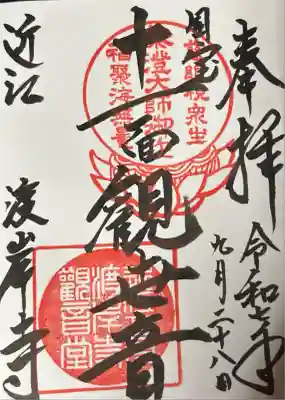 奉拝
令和七年
九月二十八日
国宝
十一面観世音
近江
渡岸寺
慈眼視衆生
伝教大師御作
福聚海無量
渡岸寺
観音堂